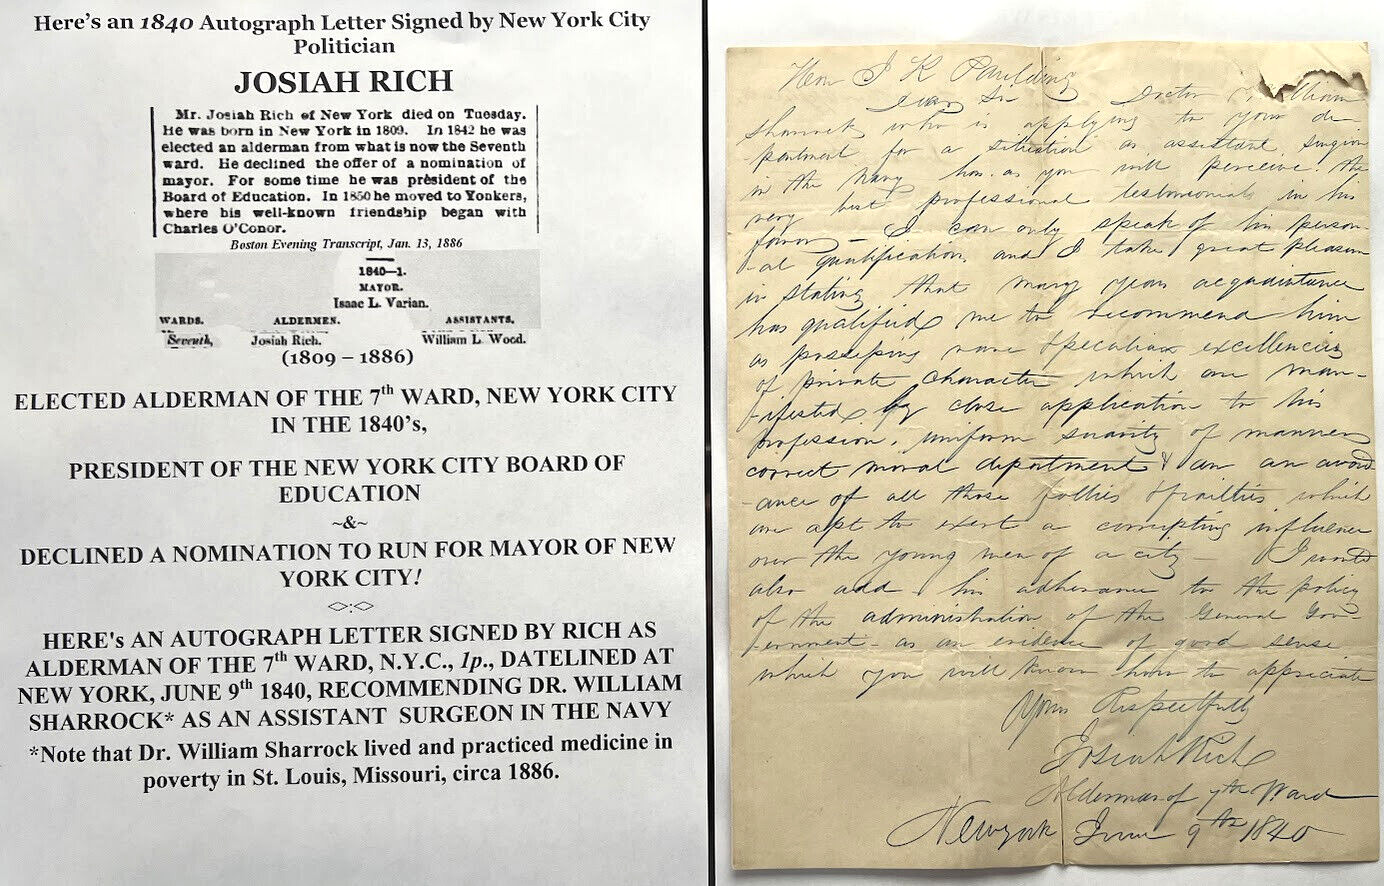 Here's an 1840 Autograph Letter Signed by New York City
Politician
JOSIAH RICH
Mr. Josiah Rich of New York died on Tuesday.
He was born in New York in 1809. In 1842 he was
elected an alderman from what is now the Seventh
ward. He declined the offer of a nomination of
mayor. For some time he was president of the
Board of Education. In 1850 he moved to Yonkers,
where his well-known friendship began with
Charles O'Conor.
Boston Evening Transcript, Jan. 13, 1886
1840—1.
MAYOR.
Isaac L. Varian.
WARDS. ALDERMEN. ASSISTANTS.
Seventh, Josiah Rich. William L. Wood.
(1809 – 1886)
ELECTED ALDERMAN OF THE 7th WARD, NEW YORK CITY
IN THE 1840's,
PRESIDENT OF THE NEW YORK CITY BOARD OF
EDUCATION
~&~
DECLINED A NOMINATION TO RUN FOR MAYOR OF NEW
YORK CITY!
◇:◇
HERE's AN AUTOGRAPH LETTER SIGNED BY RICH AS
ALDERMAN OF THE 7th WARD, N.Y.C., 1p., DATELINED AT
NEW YORK, JUNE 9th 1840, RECOMMENDING DR. WILLIAM
SHARROCK* AS AN ASSISTANT SURGEON IN THE NAVY
*Note that Dr. William Sharrock lived and practiced medicine in
poverty in St. Louis, Missouri, circa 1886.
Hon J K Paulding
Dear Sir Doctor William
Sharrock who is applying to your de
partment for a situation as assistant surgion
in the Navy has as you will perceive the
very best professional testimonials in his
favor — I can only speak of his person
al qualification, and I take great pleasure
in stating that many years acquaintance
has qualified me to recommend him
as possessing rare & peculiar excellencies
of private character which are man-
ifested by close application to his
profession, uniform suavity of manners
correct moral department & an avoid
-ance of all those follies & frailties which
are apt to exert a corrupting influence
over the young men of a city — I would
also add his adherance to the policy
of the administration of the General Gov-
ernment as an evidence of good sense
which you will know how to appreciate
Yours Respectfully
Josiah Rich
Alderman of 7th Ward
New York June 9th 1840